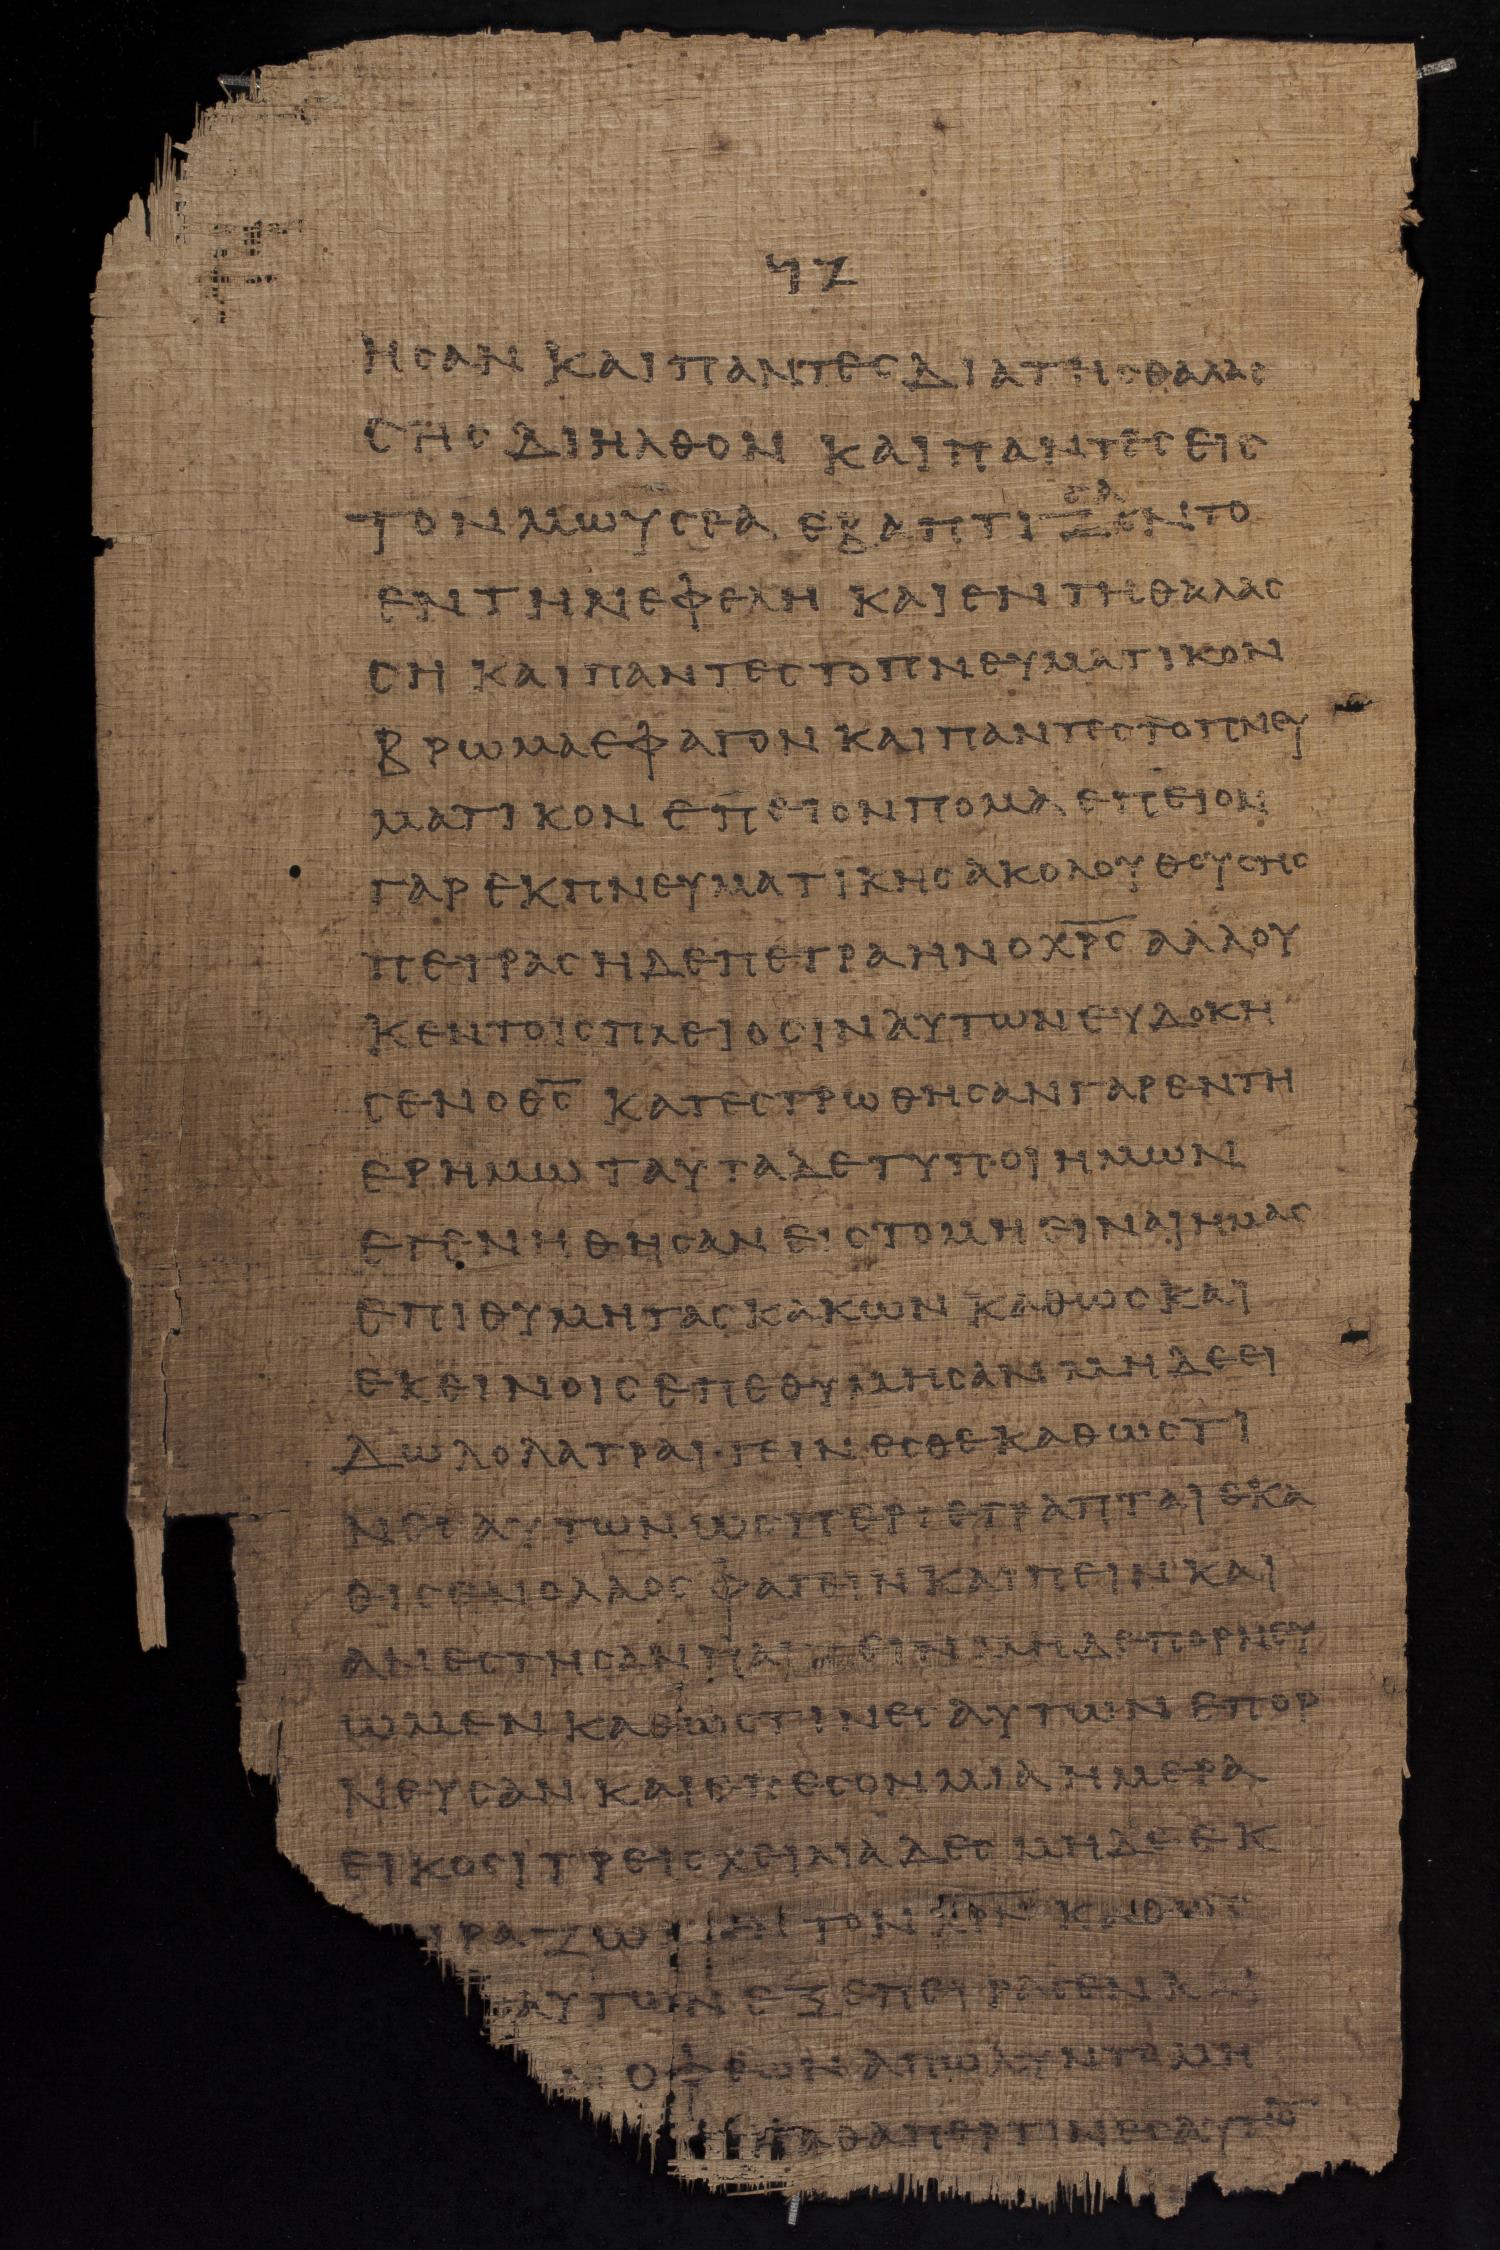 ϥζ
ΗϹΑΝ ΚΑΙ ΠΑΝΤΕϹ ΔΙΑ ΤΗϹ ΘΑΛΑϹ
ϹΗϹ ΔΙΗΛΘΟΝ ΚΑΙ ΠΑΝΤΕϹ ΕΙϹ
ΤΟΝ ΜΩΥϹΕΑ ΕΒΑΠΤΙΖΟΝΤΟ
ΕΝ ΤΗ ΝΕΦΕΛΗ ΚΑΙ ΕΝ ΤΗ ΘΑΛΑϹ
ϹΗ ΚΑΙ ΠΑΝΤΕϹ ΤΟ ΠΝΕΥΜΑΤΙΚΟΝ
ΒΡΩΜΑ ΕΦΑΓΟΝ ΚΑΙ ΠΑΝΤΕϹ ΤΟ ΠΝΕΥ
ΜΑΤΙΚΟΝ ΕΠΕΙΟΝ ΠΟΜΑ ΕΠΕΙΟΝ
ΓΑΡ ΕΚ ΠΝΕΥΜΑΤΙΚΗϹ ΑΚΟΛΟΥΘΟΥϹΗϹ
ΠΕΤΡΑϹ Η ΔΕ ΠΕΤΡΑ ΗΝ Ο Χ̅Ρ̅Ϲ̅ ΑΛΛ ΟΥ
Κ ΕΝ ΤΟΙϹ ΠΛΕΙΟϹΙΝ ΑΥΤΩΝ ΕΥΔΟΚΗ
ϹΕΝ Ο Θ̅Ϲ̅ ΚΑΤΕϹΤΡΩΘΗϹΑΝ ΓΑΡ ΕΝ ΤΗ
ΕΡΗΜΩ ΤΑΥΤΑ ΔΕ ΤΥΠΟΙ ΗΜΩΝ
ΕΓΕΝΗΘΗϹΑΝ ΕΙϹ ΤΟ ΜΗ ΕΙΝΑΙ ΗΜΑϹ
ΕΠΙΘΥΜΗΤΑϹ ΚΑΚΩΝ ΚΑΘΩϹ ΚΑΙ
ΕΚΕΙΝΟΙϹ ΕΠΕΘΥΜΗϹΑΝ ΜΗΔΕ ΕΙ
ΔΩΛΟΛΑΤΡΑΙ ΓΕΙΝΕϹΘΕ ΚΑΘΩϹ ΤΙ
ΝΕϹ ΑΥΤΩΝ ΩϹΠΕΡ ΓΕΓΡΑΠΤΑΙ ΕΚΑ
ΘΙϹΕΝ Ο ΛΑΟϹ ΦΑΓΕΙΝ ΚΑΙ ΠΕΙΝ ΚΑΙ
ΑΝΕϹΤΗϹΑΝ ΠΑΙΖΕΙΝ ΜΗΔΕ ΠΟΡΝΕΥ
ΩΜΕΝ ΚΑΘΩϹ ΤΙΝΕϹ ΑΥΤΩΝ ΕΠΟΡ
ΝΕΥϹΑΝ ΚΑΙ ΕΠΕϹΟΝ ΜΙΑ ΗΜΕΡΑ
ΕΙΚΟϹΙ ΤΡΕΙϹ ΧΕΙΛΙΑΔΕϹ ΜΗΔΕ ΕΚ
ΙΡΑΖΩΜΕΝ ΤΟΝ Χ̅Ρ̅Ν̅ ΚΑΘΩϹ
ΑΥΤΩΝ ΕΞΕΠΕΙΡΑϹΕΝ ΚΑΙ
ΟΦΕΩΝ ΑΠΩΛΥΝΤΟ ΜΗ
ΚΑΘΑΠΕΡ ΤΙΝΕϹ ΑΥΤΩ̅